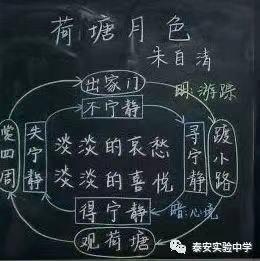 荷塘月色
朱自清
出家门
明:游踪
不宁静
失宁静
淡淡的哀愁
寻宁静
踱小路
淡淡的喜悦
得宁静
暗:心境
观荷塘
泰安实验中学